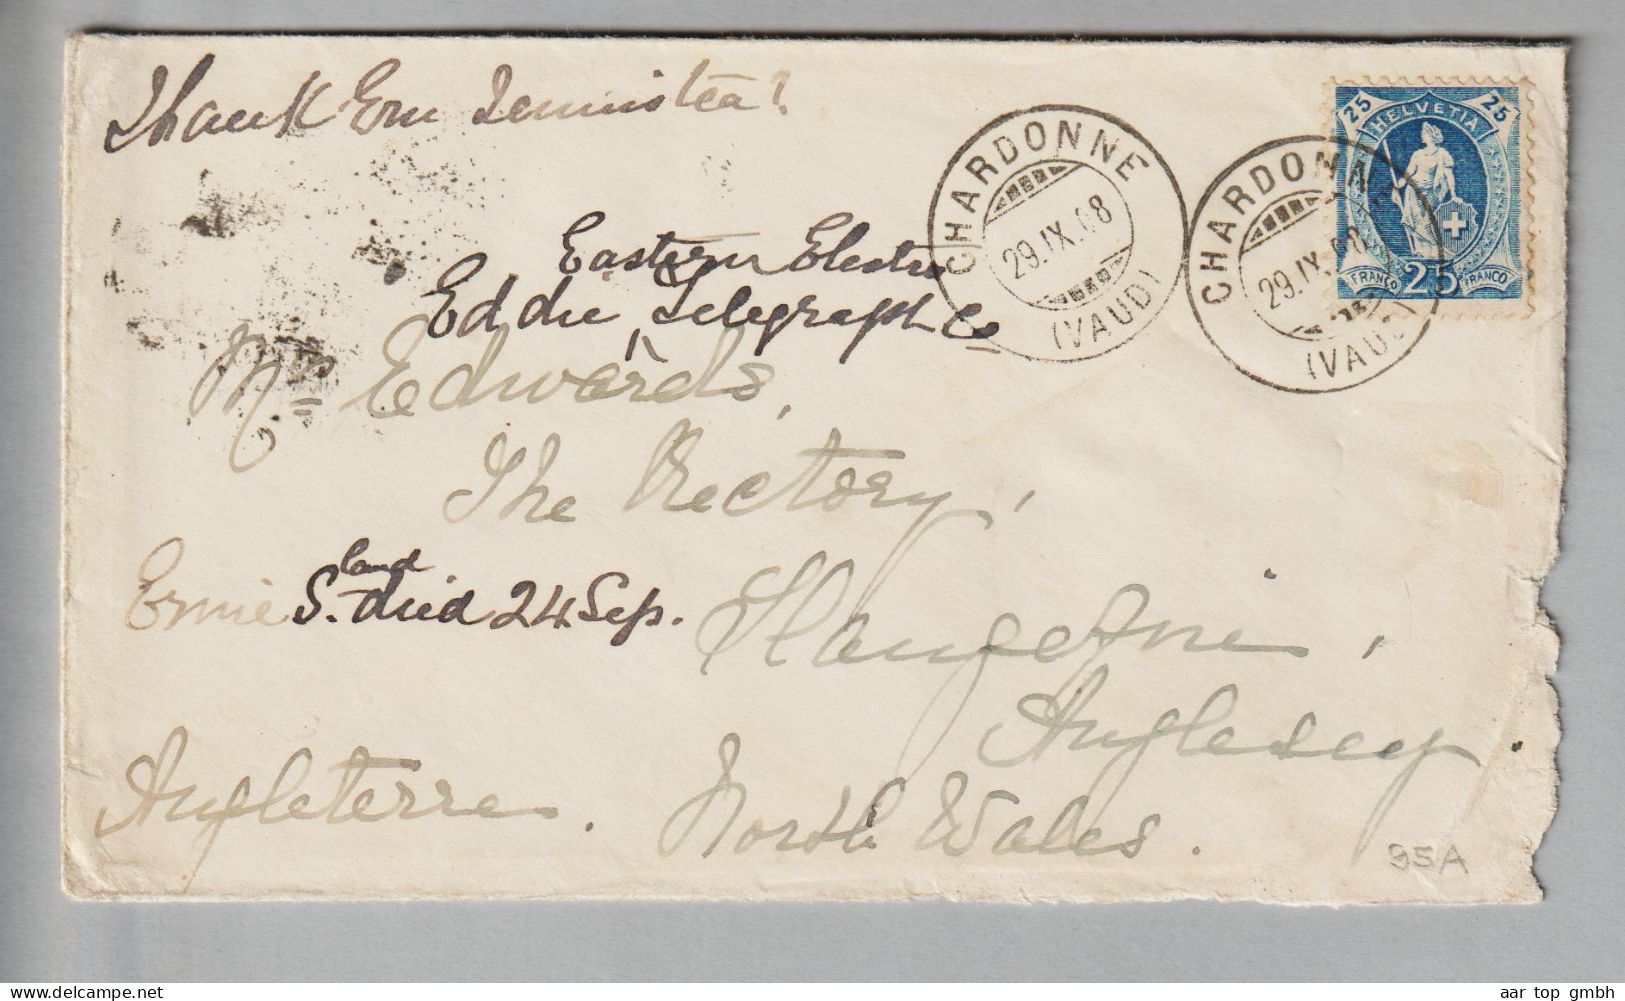 Thank Ern
25 HELVETIA 25
FRANCO 25 FRANCO
CHARDONNE
29.IX.08
(VAUD)
CHARDONNE
29.IX.08
(VAUD)
Eastern Electro
Eddie, Telegraph Co
Mrs Edwards,
The Rectory,
land
Ernie S. died 24 Sep.
Llangefni,
Anglesey.
Angleterre.
North Wales.
95A
aar top gmbh